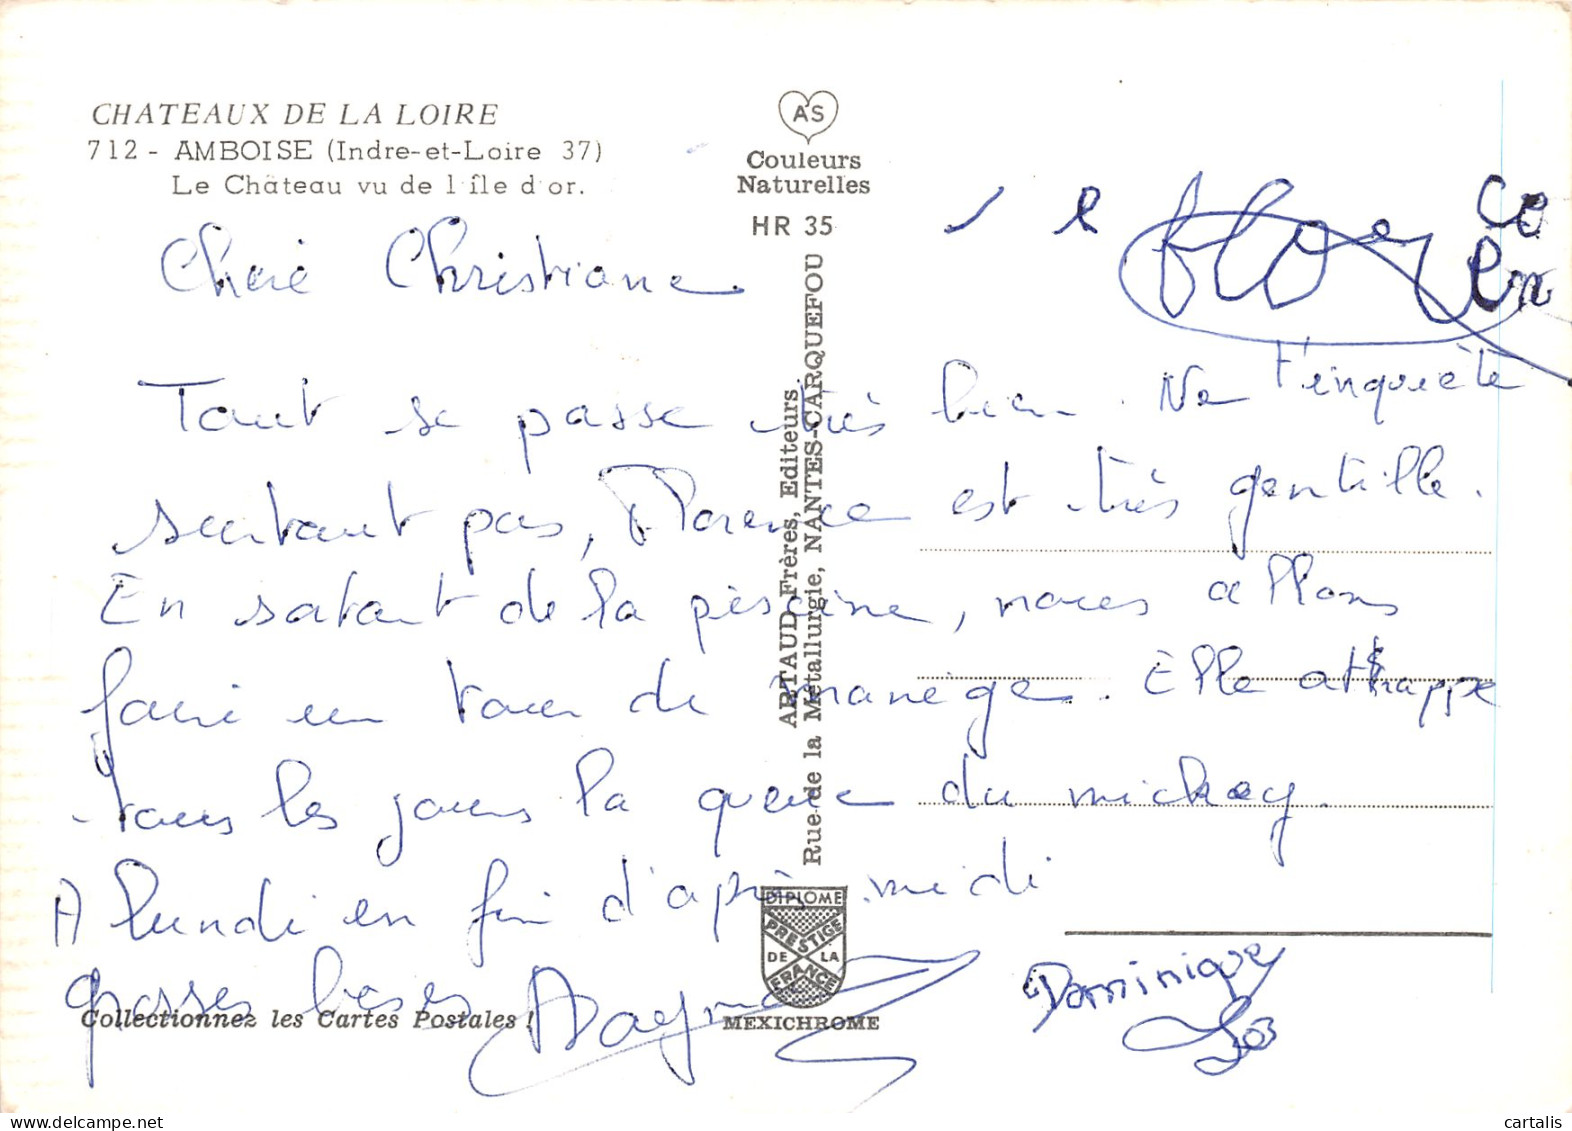 CHATEAUX DE LA LOIRE
712 - AMBOISE (Indre-et-Loire 37)
Le Château vu de l'île d'or.
AS
Couleurs
Naturelles
HR 35
Cheré Christiane.
Tout se passe très bien. Ne t'inquiète
surtout pas, Florence est très gentille.
En sortant de la piscine, nous allons
faire un tour de manège. Elle attrappe
tous les jours la queue du mickey.
A lundi en fin d'après-midi
grosses bises
Dominique
flo
ce
en
ARTAUD Frères, Editeurs
Rue de la Métallurgie, NANTES-CARQUEFOU
DIPLOME
PRESTIGE
DE LA
FRANCE
MEXICHROME
Collectionnez les Cartes Postales !
cartalis
www.delcampe.net